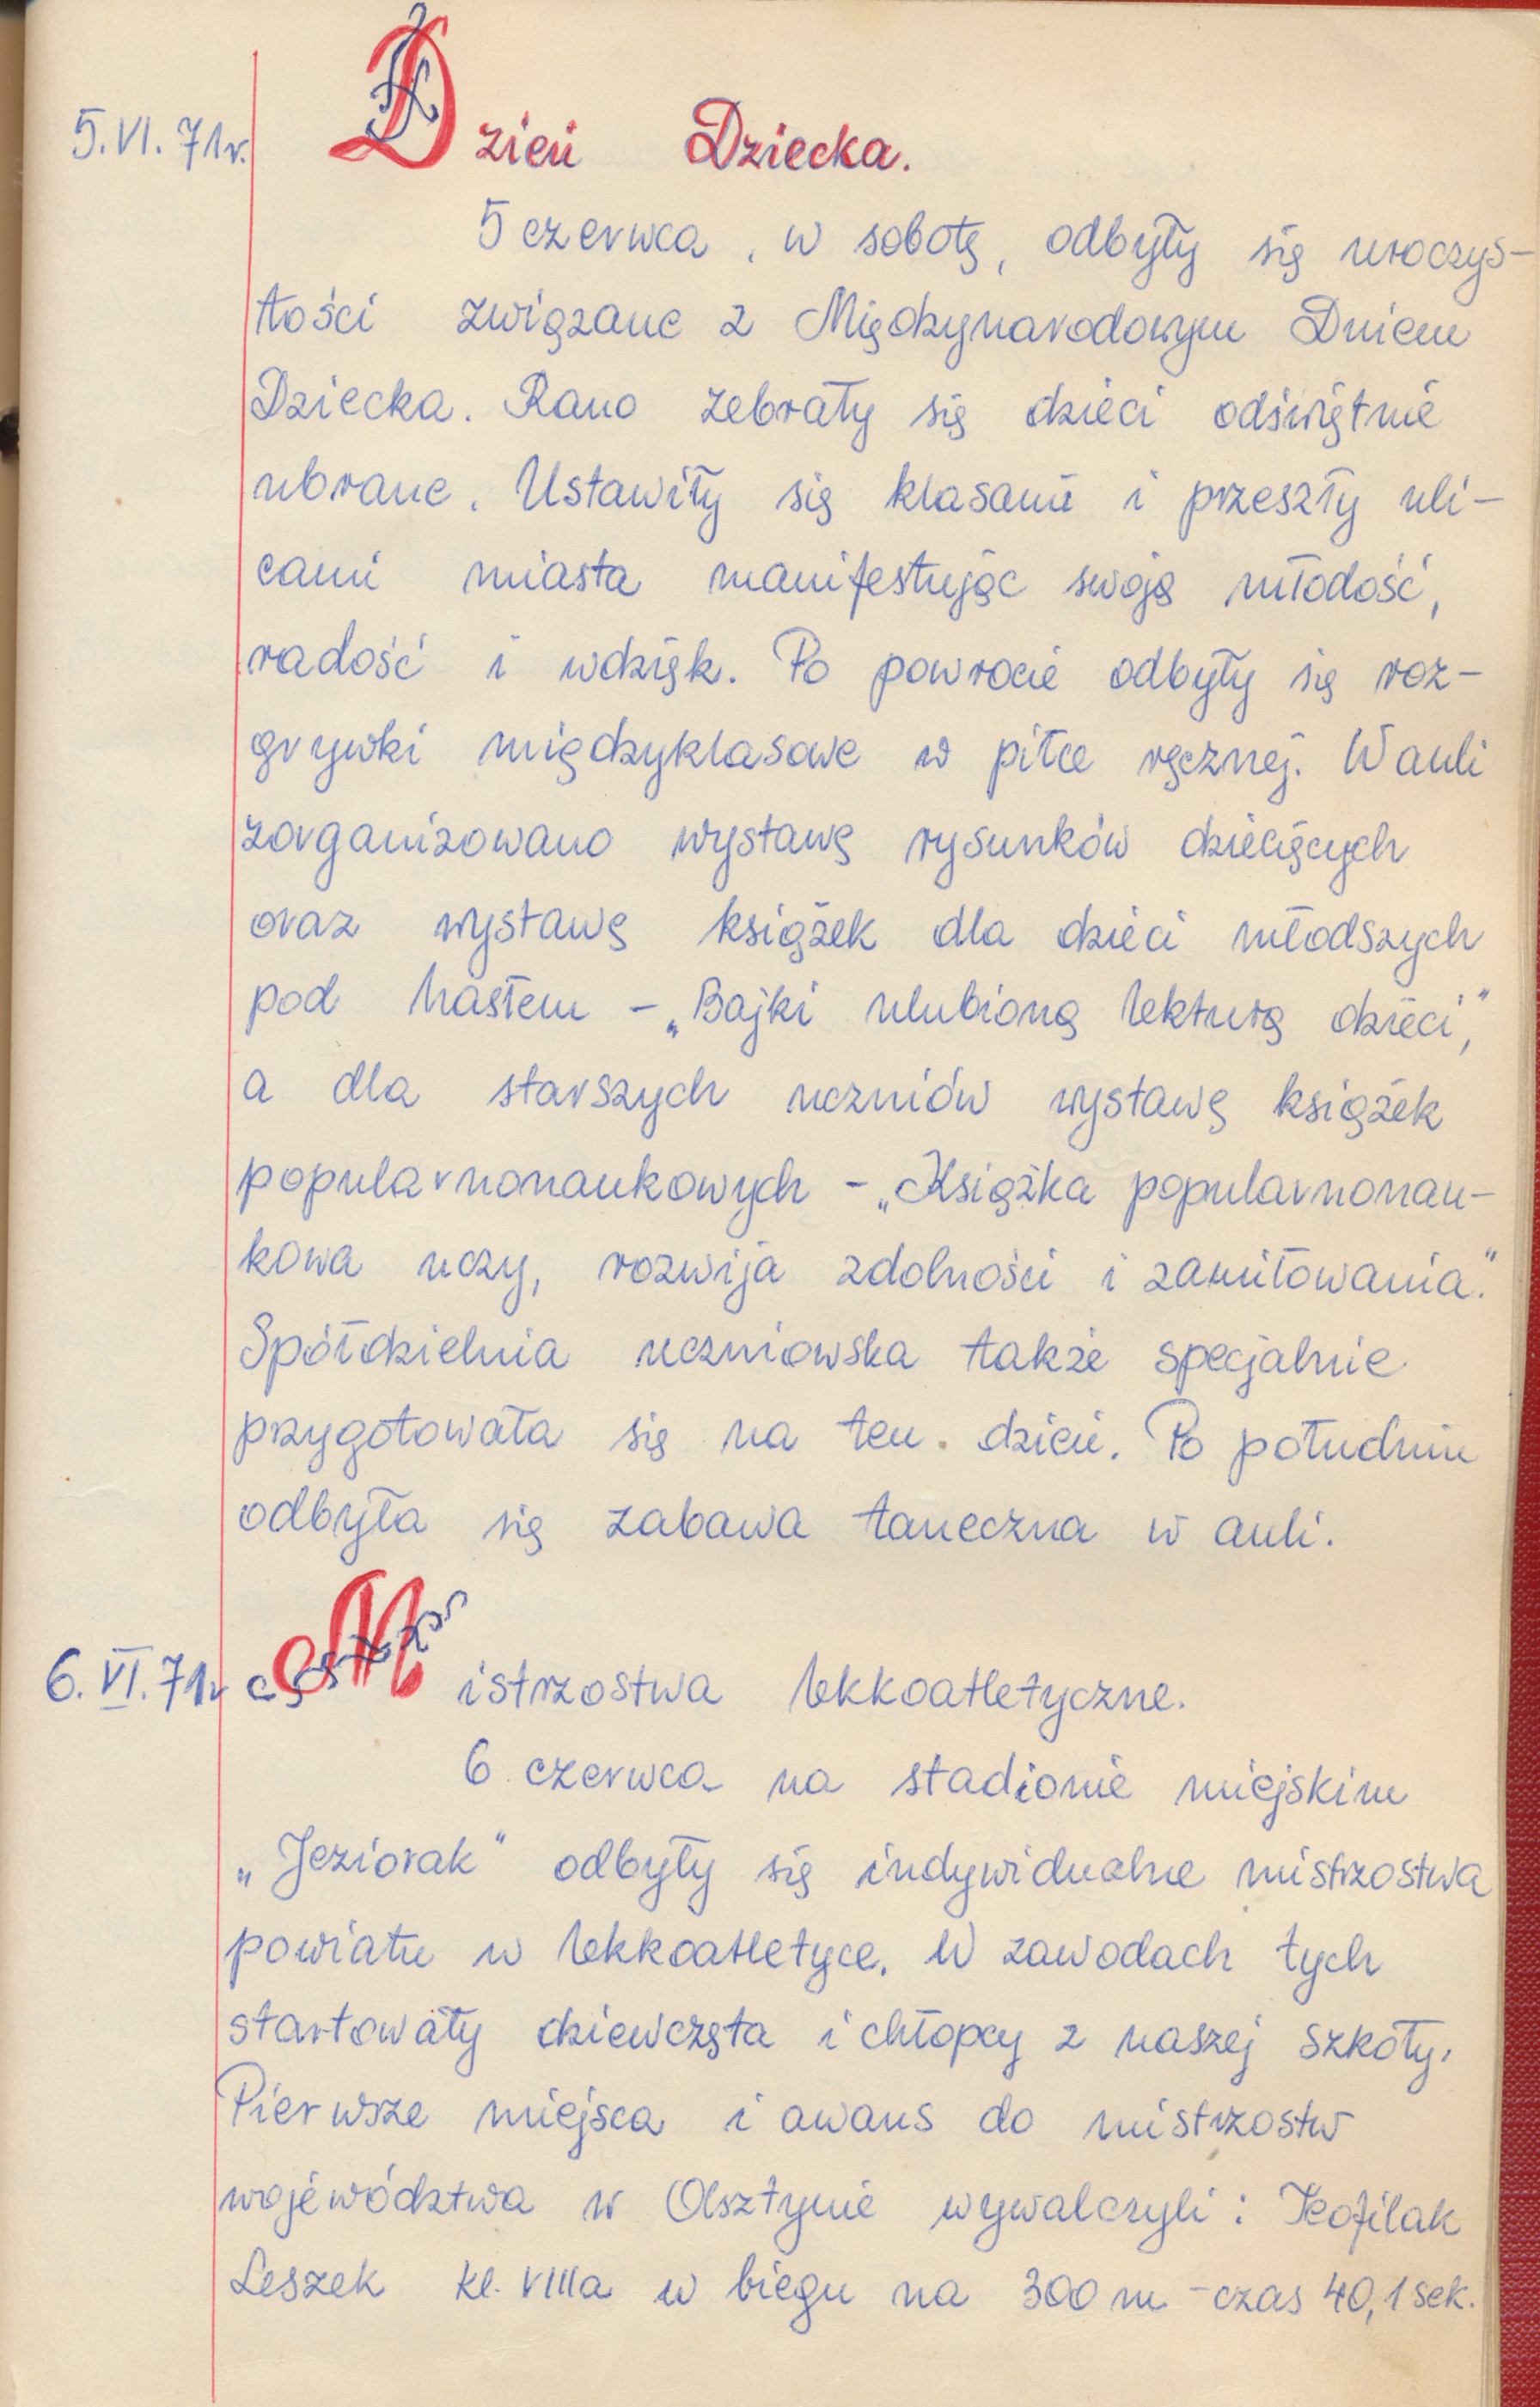 5.VI.71r.
Dzień Dziecka.
5 czerwca, w sobotę, odbyły się uroczys-
tości związane z Międzynarodowym Dniem
Dziecka. Rano zebrały się dzieci odświętnie
ubrane. Ustawiły się klasami i przeszły uli-
cami miasta manifestując swoją młodość,
radość i wdzięk. Po powrocie odbyły się roz-
grywki międzyklasowe w piłce ręcznej. W auli
zorganizowano wystawę rysunków dziecięcych
oraz wystawę książek dla dzieci młodszych
pod hasłem - „Bajki ulubioną lekturą dzieci”,
a dla starszych uczniów wystawę książek
popularnonaukowych - „Książka popularnonau-
kowa uczy, rozwija zdolności i zamiłowania”.
Spółdzielnia uczniowska także specjalnie
przygotowała się na ten dzień. Po południu
odbyła się zabawa taneczna w auli.
6.VI.71r
Mistrzostwa lekkoatletyczne.
6 czerwca na stadionie miejskim
„Jeziorak” odbyły się indywidualne mistrzostwa
powiatu w lekkoatletyce. W zawodach tych
startowały dziewczęta i chłopcy z naszej szkoły.
Pierwsze miejsca i awans do mistrzostw
województwa w Olsztynie wywalczyli: Teofilak
Leszek kl. VIIIa w biegu na 300 m - czas 40,1 sek.